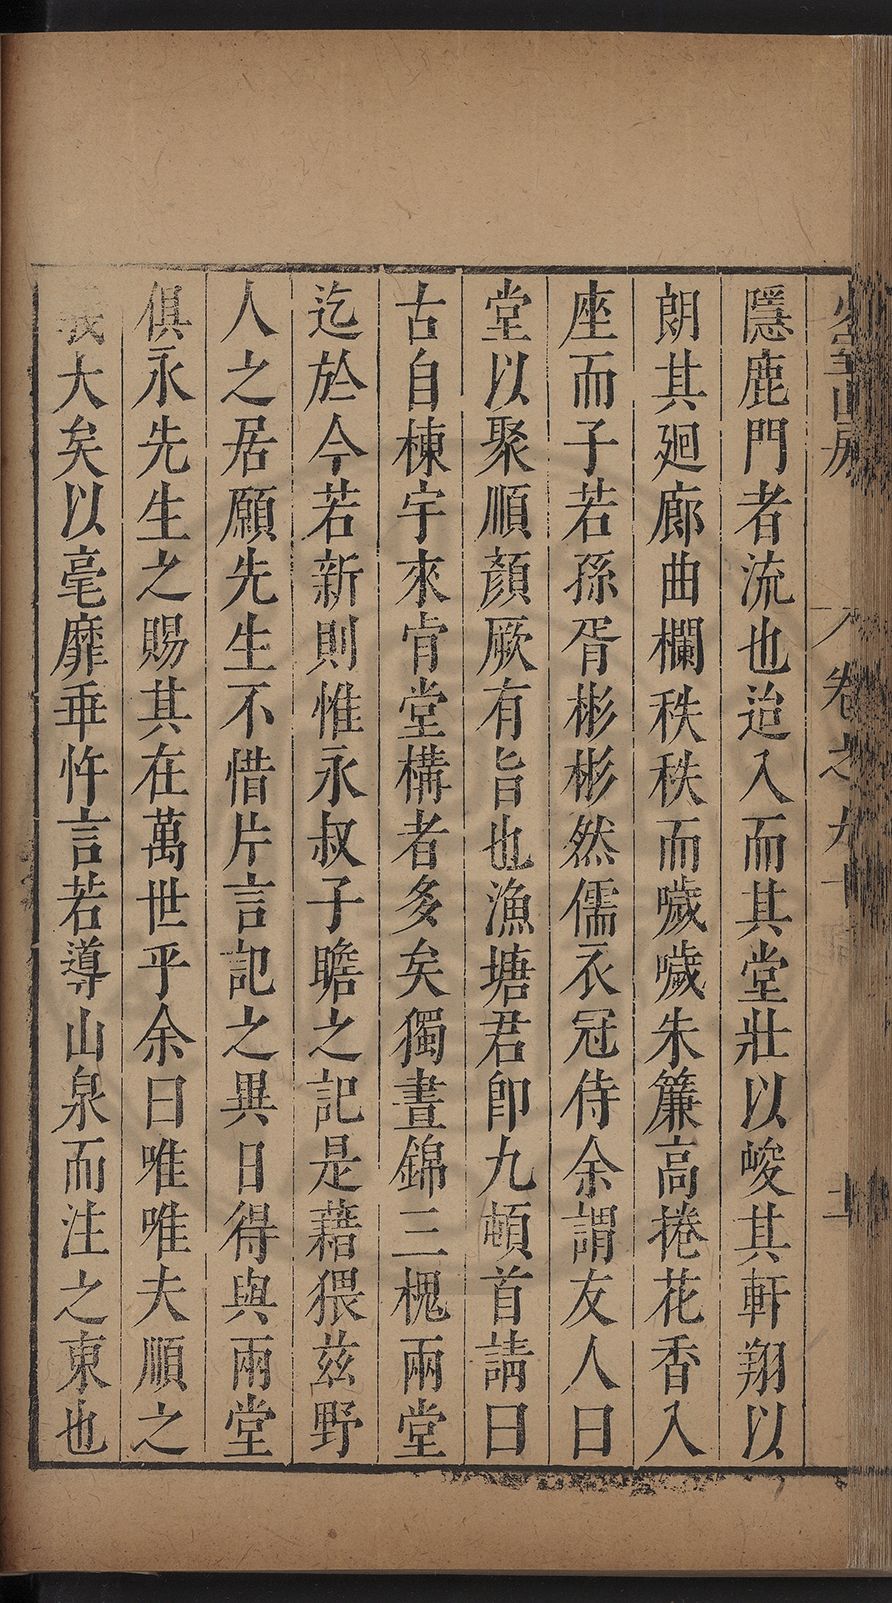 少室山房
卷之九十
十一
隱鹿門者流也迨入而其堂壯以峻其軒翔以
朗其廻廊曲欄秩秩而噦噦朱簾高捲花香入
座而子若孫胥彬彬然儒衣冠侍余謂友人曰
堂以聚順顏厥有旨也漁塘君卽九頓首請曰
古自棟宇來肯堂構者多矣獨晝錦三槐兩堂
迄於今若新則惟永叔子瞻之記是藉猥茲野
人之居願先生不惜片言記之異日得與兩堂
俱永先生之賜其在萬世乎余曰唯唯夫順之
義大矣以亳靡乖忤言若導山泉而注之東也